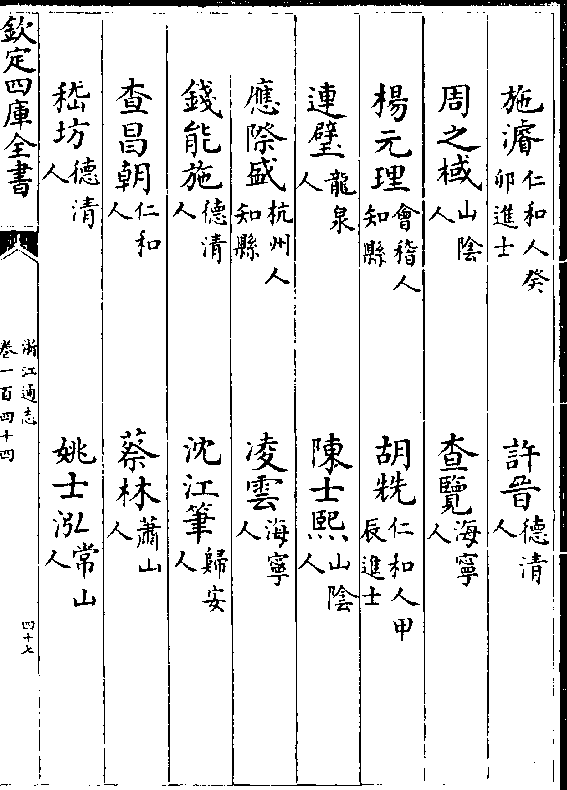 施濬仁和人癸卯進士 許晉德清人
周之棫山陰人 查覽海寧人
楊元理會稽人知縣 胡兟仁和人甲辰進士
連璧龍泉人 陳士熙山陰人
應際盛杭州人知縣 凌雲海寧人
錢能施德清人 沈江筆歸安人
查昌朝仁和人 蔡林蕭山人
嵇坊德清人 姚士泓常山人
欽定四庫全書 浙江通志 卷一百四十四 四十七